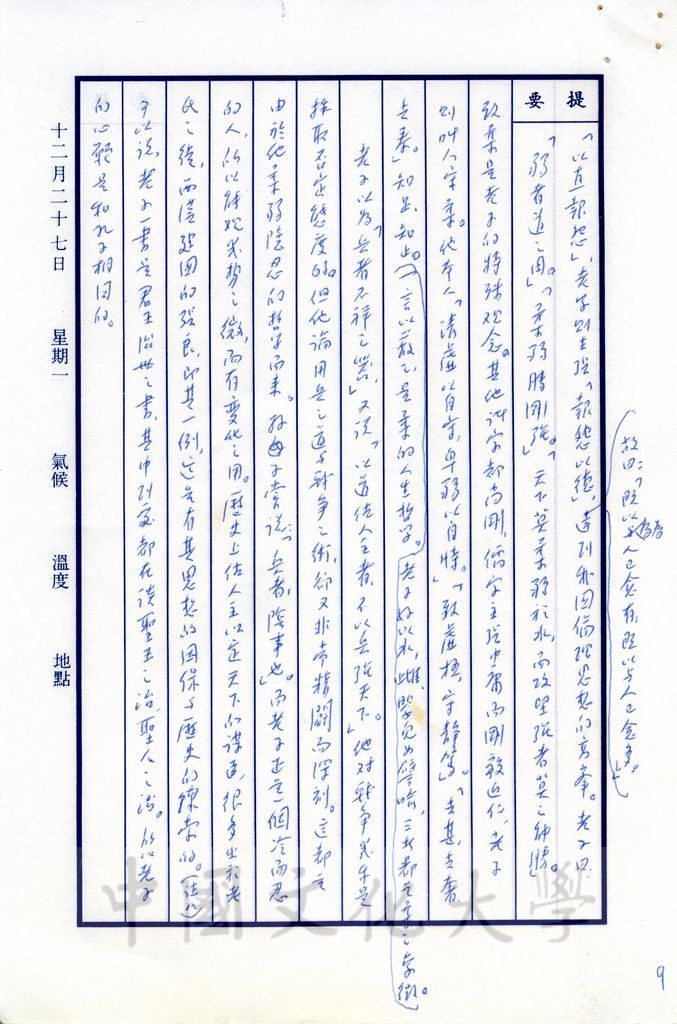 提要
「以直報怨」，老子則主張「報怨以德」，達到我國倫理思想的高峯。老子曰
故曰：「既以為人己愈有，既以與人己愈多。」
「弱者道之用。」「柔弱勝剛強。」「天下莫柔弱於水，而攻堅強者莫之能勝。」
致柔是老子的特殊观念。其他诸家都尚剛，儒家主張中庸而剛毅近仁，老子
則叫人守柔。他本人「清虛以自守，卑弱以自持。」「致虛極，守靜篤。」「去甚，去奢，
去泰。」知足，知止，言以蔽之，是柔的人生哲学。老子好以水，雌，嬰兒為譬喻，三者都是柔之象徵。
老子以為「兵者不祥之器，」又說「以道佐人主者，不以兵強天下。」他对戰争幾乎是
採取否定態度的。但他論用兵之道与戰争之術，卻又非常精闢而深刻。這都是
由於他柔弱陰忍的哲学而來。孫子嘗說：「兵者，陰事也。」而老子正是一個冷而忍
的人，所以能观幾势之微，而有變化之用。歷史上佐人主以定天下的謀士，很多出於老
氏之後，西漢建國的張良，即其一例，這是有其思想的因緣与歷史的線索的。
可以说，老子一書是君王治世之書，其中到處都在談聖王之治，聖人之治。所以老子
的心願是和孔子相同的。
十二月二十七日 星期一 氣候 溫度 地點
中國文化大學
9